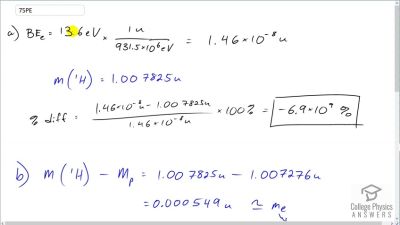 75PE
a) BEe = 13.6 eV × 1u / 931.5×10⁶eV = 1.46×10⁻⁸ u
m(¹H) = 1.007825u
% diff = 1.46×10⁻⁸u − 1.007825u / 1.46×10⁻⁸u × 100% = −6.9×10⁹ %
b) m(¹H) − Mp = 1.007825u − 1.007276u
= 0.000549u ≃ me
College Physics
ANSWERS